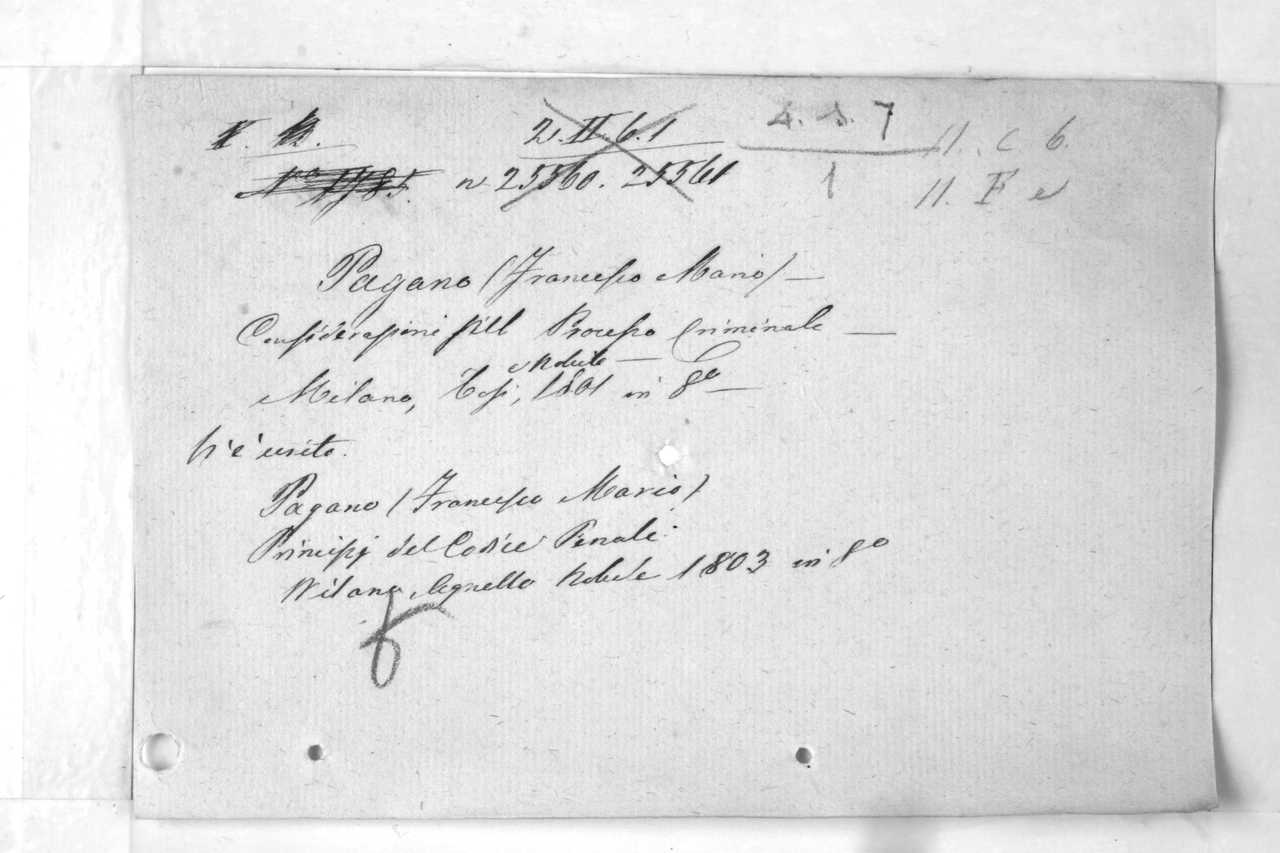 2. II. 6. 1 4. 5. 7 11. c 6.
n. 25560. 25561 1 11. F e
Pagano (Francesco Mario) —
Considerazioni sull Processo Criminale —
Nobile —
Milano, Tosi, 1801 in 8º —
Si è unito.
Pagano (Francesco Mario)
Principj del Codice Penale.
Milano, Agnello Nobile 1803 in 8º